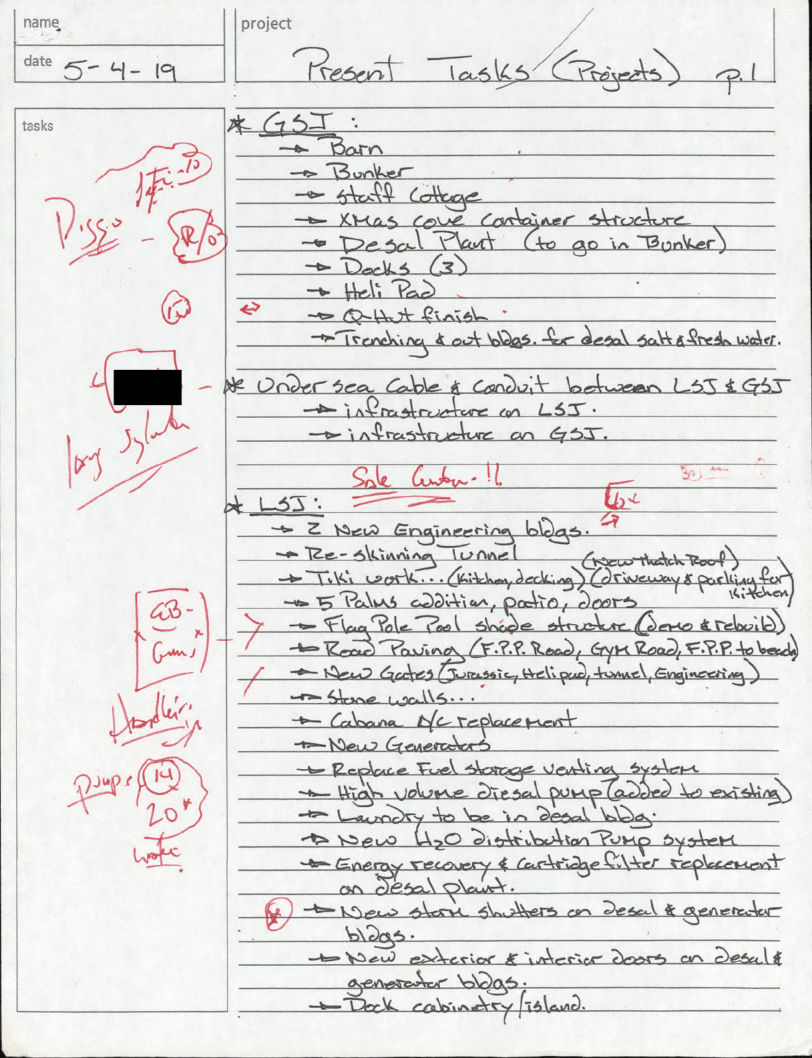 name
project
date 5-4-19
Present Tasks (Projects) p.1
tasks
* GSJ :
→ Barn
→ Bunker
→ Staff Cottage
→ XMas cove container structure
→ Desal Plant (to go in Bunker)
→ Docks (3)
→ Heli Pad
→ Q-Hut finish
→ Trenching & out bldgs. for desal salt & fresh water.
R/O
* Under sea Cable & Conduit between LSJ & GSJ
→ infrastructure on LSJ.
→ infrastructure on GSJ.
* LSJ:
→ 2 New Engineering bldgs.
→ Re-skinning Tunnel
(New Thatch Roof)
→ Tiki work... (Kitchen, decking) (driveway & parking for Kitchen)
→ 5 Palms addition, patio, doors
→ Flag Pole Pool shade structure (demo & rebuild)
→ Road Paving (F.P.P. Road, Gym Road, F.P.P. to beach)
→ New Gates (Jurassic, Helipad, tunnel, Engineering)
→ Stone walls...
→ Cabana A/C replacement
→ New Generators
→ Replace Fuel storage venting system
→ High volume diesal pump (added to existing)
→ Laundry to be in desal bldg.
→ New H2O distribution Pump system
→ Energy recovery & Cartridge filter replacement
on desal plant.
→ New storm shutters on desal & generator
bldgs.
→ New exterior & interior doors on desal &
generator bldgs.
→ Dock cabinetry/island.
pumps 14
20
water